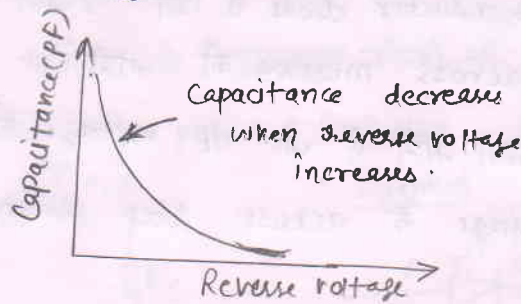 Capacitance(PF)
Capacitance decreases
when reverse voltage
increases.
Reverse voltage